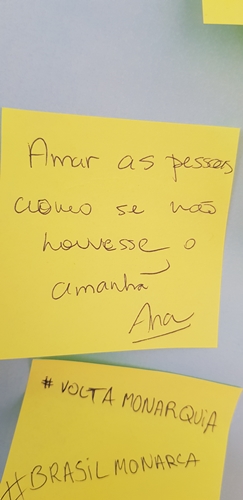 Amar as pessoas
como se não
houvesse o
amanhã
Ana
# VOLTA MONARQUIA
#BRASIL MONARCA